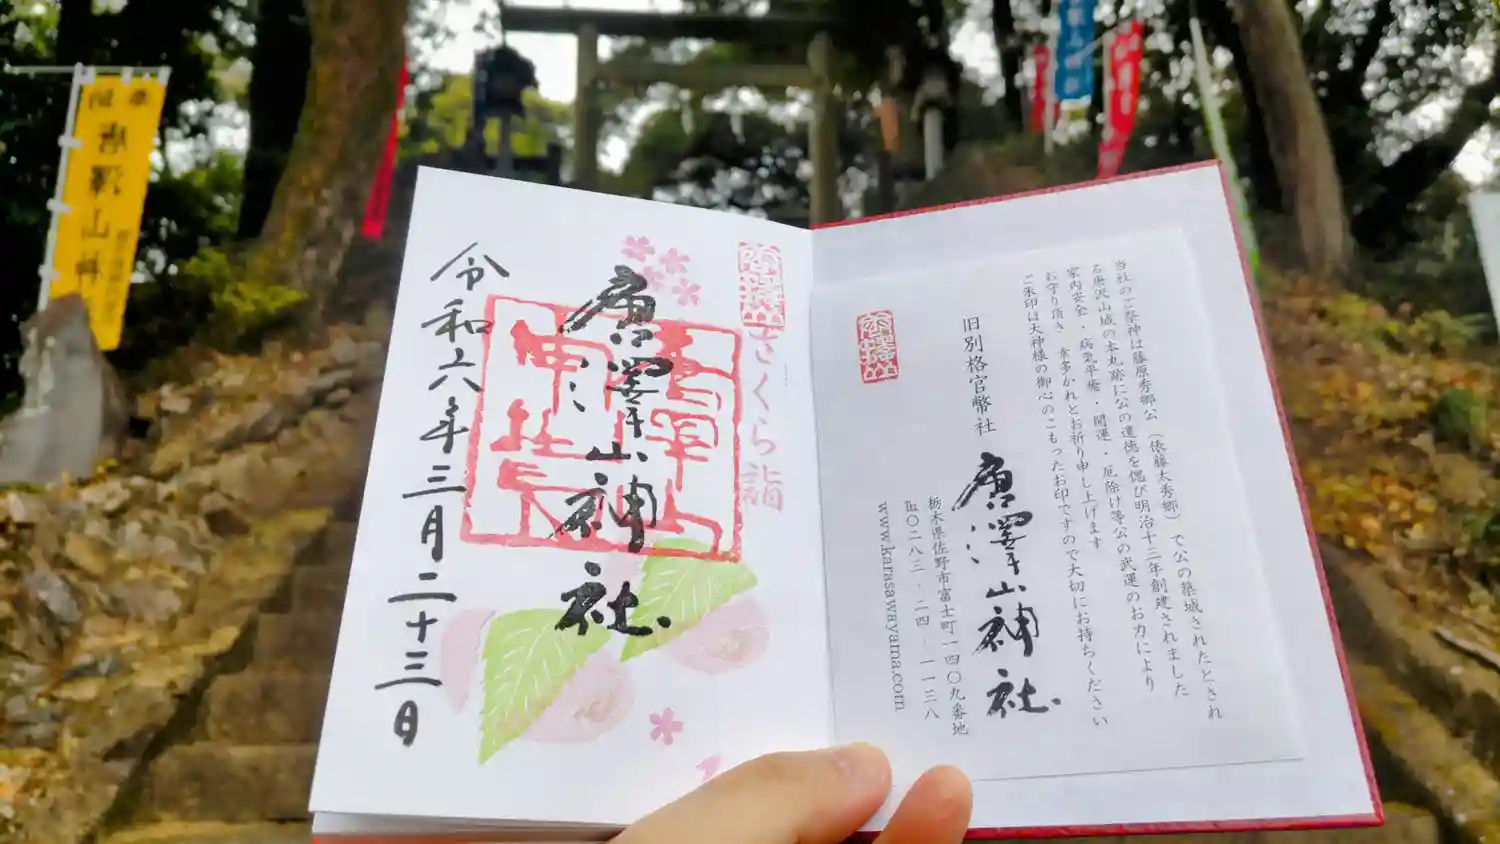 唐澤山
さくら詣
唐澤山神社
令和六年三月二十三日
当社のご祭神は藤原秀郷公（俵藤太秀郷）で公の築城されたとされ
る唐沢山城の本丸跡に公の遺徳を偲び明治十三年創建されました
家内安全・病気平癒・開運・厄除け等公の武運のお力により
お守り頂き 幸多かれとお祈り申し上げます
ご朱印は大神様の御心のこもったお印ですので大切にお持ちください
旧別格官幣社
唐澤山神社
唐澤山
栃木県佐野市富士町一四〇九番地
℡〇二八三-二四-一一三八
www.karasawayama.com
唐澤山神